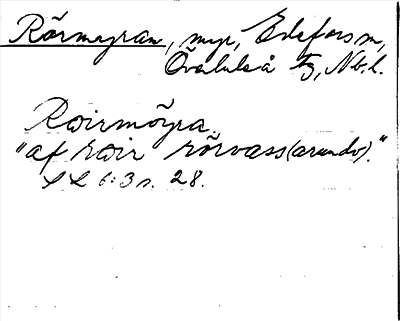 Rörmyran, myr, Edefors sn,
Överluleå tg, Nb. l.
Rœirmöyra.
"af rœir rörvass (arundo)."
S L 6:3 s. 28.